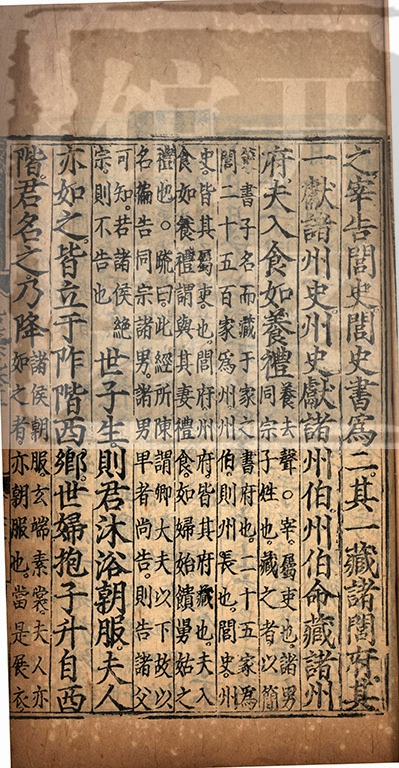 之宰告閭史閭史書爲二其一藏諸閭府其
一獻諸州史州史獻諸州伯州伯命藏諸州
府夫入食如養禮
養去聲○宰屬吏也諸男
同宗子姓也藏之者以簡
書子名而藏于家之書府也二十五家爲
閭二十五百家爲州州伯則州長也閭史州
史皆其屬吏也閭府州府皆其府藏也夫入
食如養禮謂與其妻禮食如婦始饋舅姑之
禮也○䟽曰此經所陳謂卿大夫以下故以
名徧告同宗諸男諸男卑者尚告則告諸父
可知若諸侯絶
宗則不告也
世子生則君沐浴朝服夫人
亦如之皆立于阼階西鄉世婦抱子升自西
階君名之乃降
諸侯朝服玄端素裳夫人亦
如之者亦朝服也當是展衣